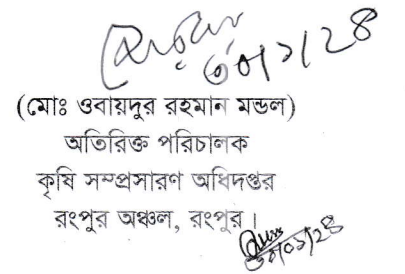 ৩০/১/২৪
(মোঃ ওবায়দুর রহমান মন্ডল)
অতিরিক্ত পরিচালক
কৃষি সম্প্রসারণ অধিদপ্তর
রংপুর অঞ্চল, রংপুর।
৩০/০১/২৪